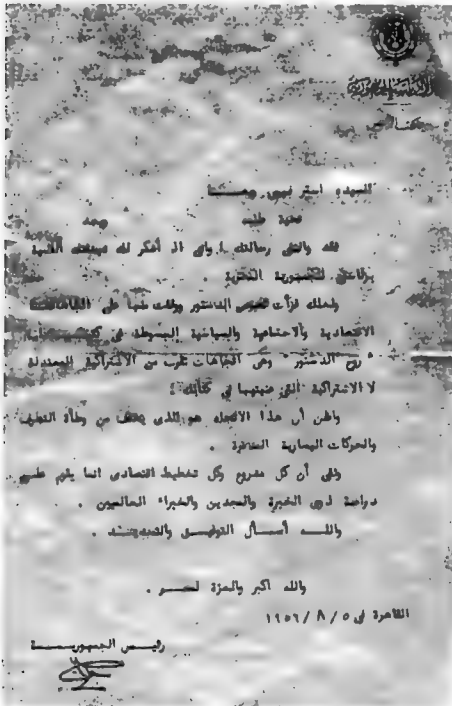 رئاسة الجمهورية
للسيدة استر فهمي ويصا
تحية طيبة وبعد
فقد وافتني رسالتك وانى اذ أشكر لك
برئاستي للجمهورية
ولعلك قرأت نصوص الدستور ووقفت منها على اتجاهاتنا
الاقتصادية والاجتماعية والسياسية المبسوطة في
" روح الدستور " وهى اتجاهات تقرب من الاشتراكية المعتدلة
لا الاشتراكية التى عنيتها في كتابك .
واظن أن هذا الاتجاه هو الذى يخفف من وطأة التطرف
والحركات اليسارية المتطرفة .
وثقى أن كل مشروع وكل تخطيط اقتصادى انما يقوم على
دراسة ذوى الخبرة والمجدين والخبراء العالميين .
واللـه أسـأل التوفيـق والتسديـد .
والله اكبر والعزة لمصـر .
القاهرة في ٥ / ٨ / ١٩٥٦
رئيـس الجمهوريـة